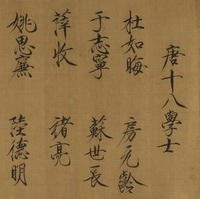 唐十八學士
杜如晦 房元齡
于志寧 蘇世長
薛收 褚亮
姚思廉 陸德明